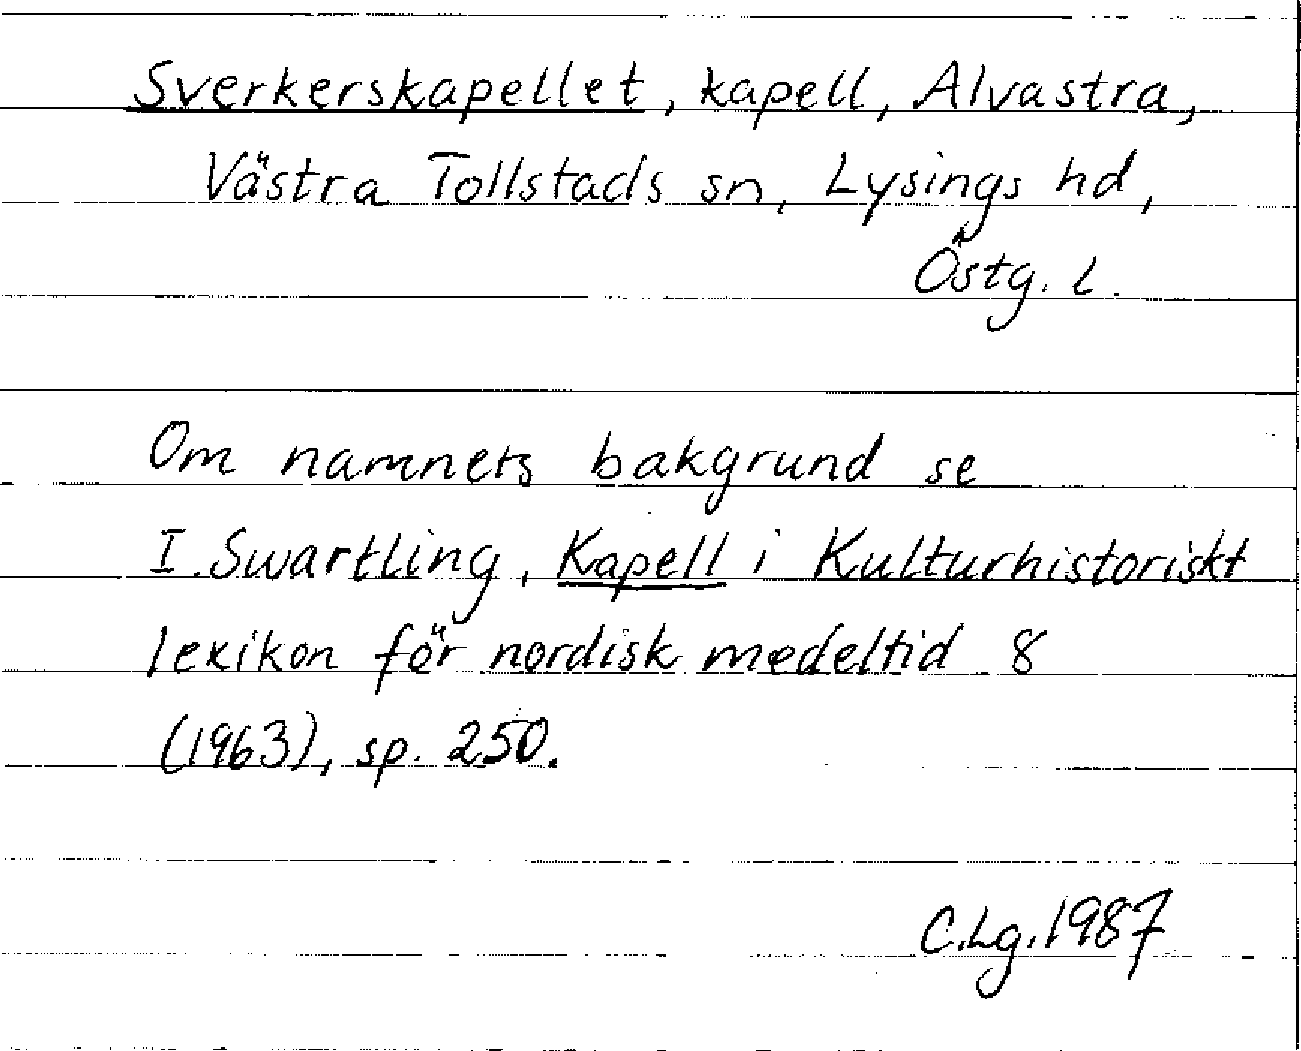 Sverkerskapellet, kapell, Alvastra,
Västra Tollstads sn, Lysings hd,
Östg. l.
Om namnets bakgrund se
I. Swartling, Kapell i Kulturhistoriskt
lexikon för nordisk medeltid 8
(1963), sp. 250.
C.Lg. 1987